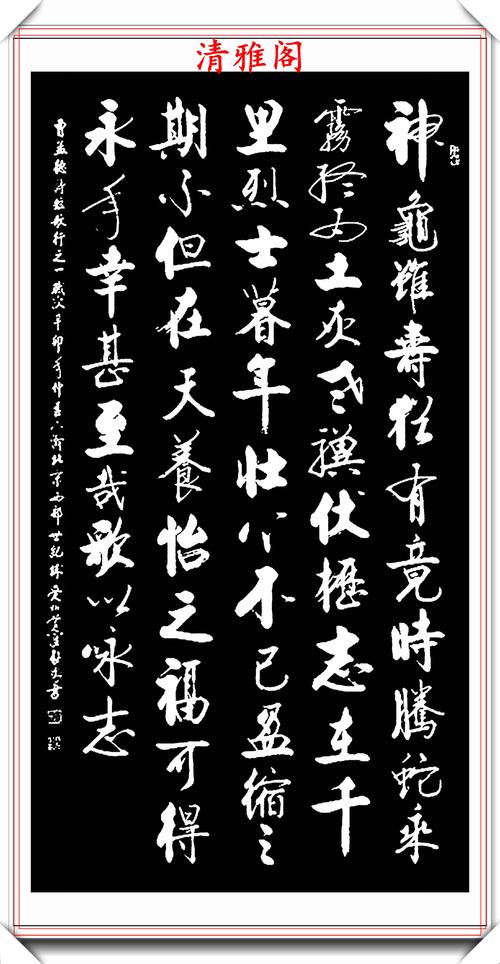 清雅阁
神龜雖壽猶有竟時騰蛇乘
霧終為土灰老驥伏櫪志在千
里烈士暮年壯心不已盈縮之
期不但在天養怡之福可得
永年幸甚至哉歌以咏志
曹孟德詩短歌行之一歲次辛卯年仲春於北京西郊世紀城